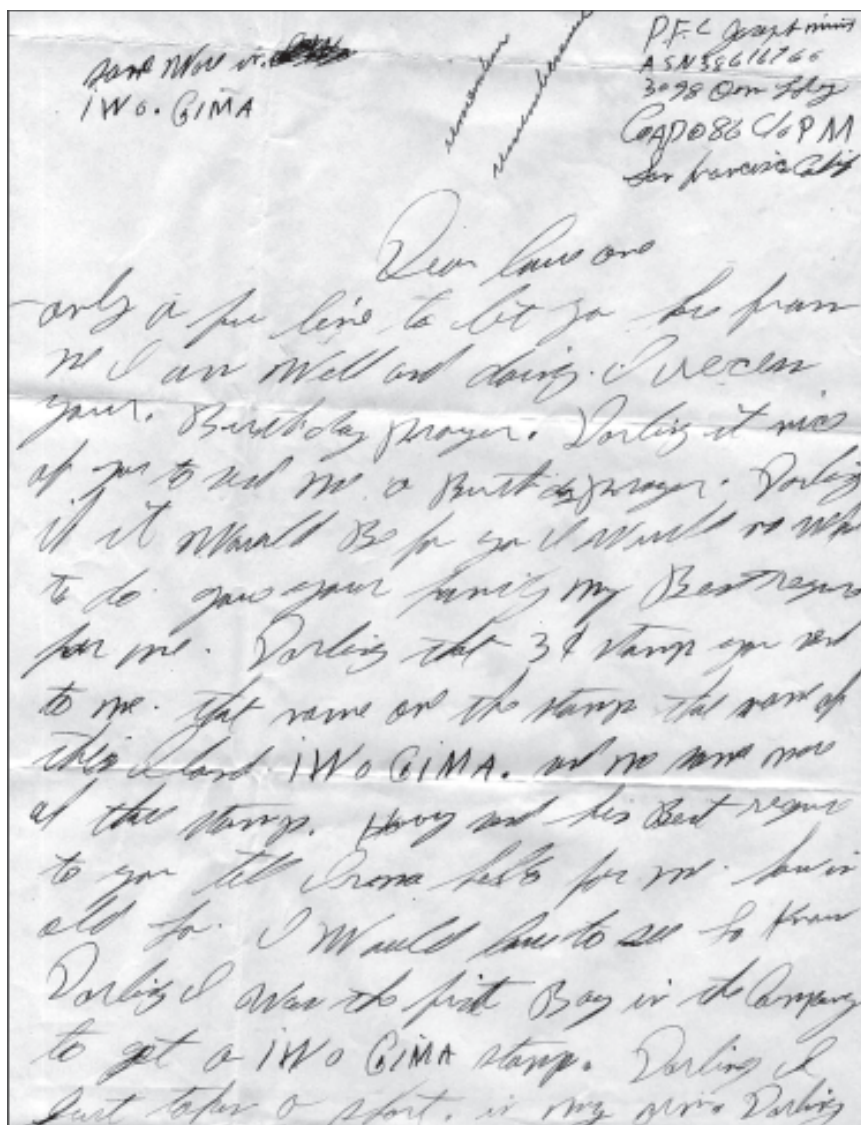 Some Wore in.
IWO. GIMA
remember
P.F.C Joseph
ASN38616766
3098 Qm
Co APO86 C/o P M
San francisco Calif
Dear love one
only a few line to let you
me I am Well and doing. I recen
your. Birthday prayer. Darling it nice
of you to send me a Birth day prayer. Darling
if it Would Be for you I Would no
to do. your family my Best regard
for me. Darling that 3¢ stamp you send
to me. that name on the stamp that name of
this Island. IWO GIMA. send me some more
of that stamp. send his Best regard
to you tell hello for me.
old. I Would love to see
Darling I was the first Boy in the Company
to get a IWO GIMA stamp. Darling I
Just taken a short. in my arm. Darling